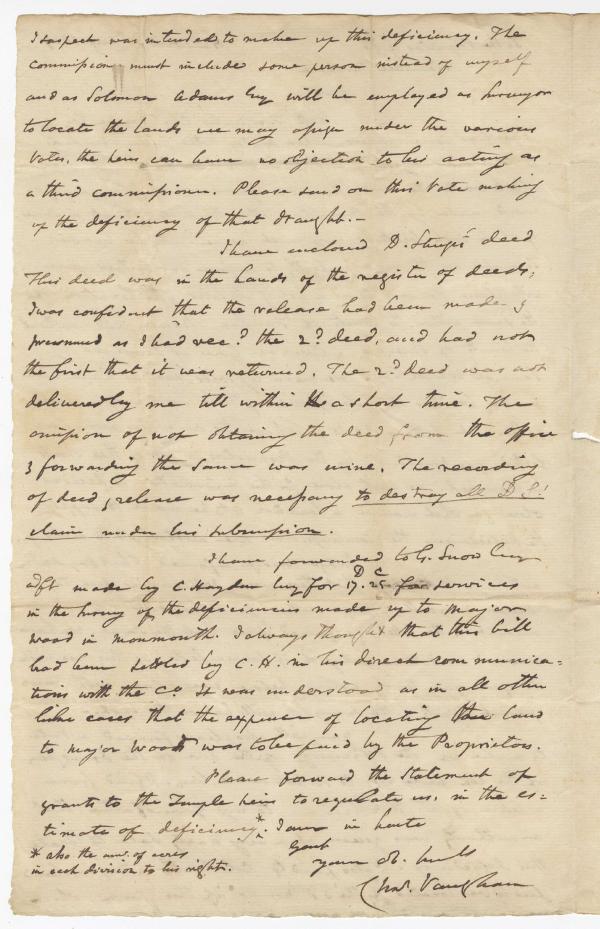 I suspect was intended to make up this deficiency. The
commission must include some person instead of myself
and as Solomon Adams Esq will be employed as surveyor
to locate the lands we may assign under the various
Votes, the heirs can have no objection to his acting as
a third commissioner. Please send on this Vote making
up the deficiency of that draught.–
I have enclosed D. Sturgis' deed
This deed was in the hands of the register of deeds;
I was confident that the release had been made &
presumed as I had recd. the 2d. deed, and had not
the first that it was returned. The 2d. deed was not
delivered by me till within a short time. The
omission of not obtaining the deed from the office
& forwarding the same was mine. The recording
of deed & release was necessary to destroy all D S's
claim under his subscription.
I have forwarded to G. Snow Esq
a dft made by C. Hayden Esq for 17 D. 25 C for services
in the survey of the deficiencies made up to Major
Wood in Monmouth. I always thought that this bill
had been settled by C. H. in his direct communica=
tions with the Co. It was understood as in all other
like cases that the expense of locating the land
to Major Wood was to be paid by the Proprietors.
Please forward the Statement of
grants to the Temple heirs to regulate us, in the es=
timate of deficiency*. I am in haste
Gent
your ob. 
* also the no. of acres
in each division to his right.
Chas. Vaughan